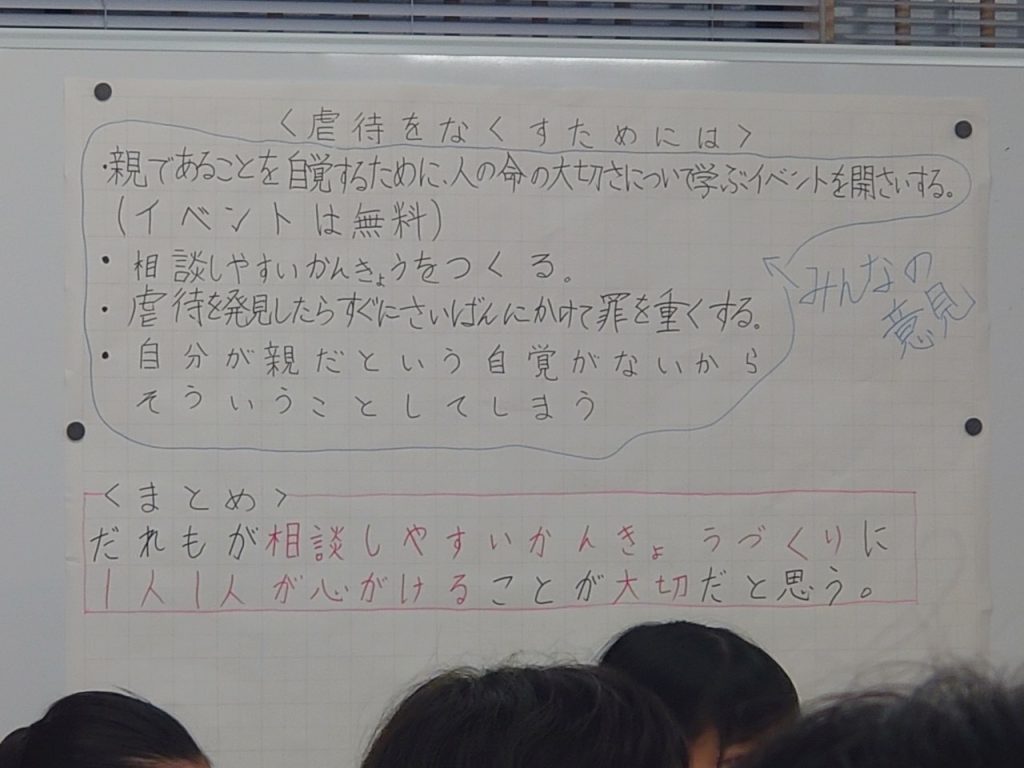 〈虐待をなくすためには〉
・親であることを自覚するために、人の命の大切さについて学ぶイベントを開さいする。
(イベントは無料)
・相談しやすいかんきょうをつくる。
・虐待を発見したらすぐにさいばんにかけて罪を重くする。
・自分が親だという自覚がないから
そういうことしてしまう
みんなの
意見
〈まとめ〉
だれもが相談しやすいかんきょうづくりに
1人1人が心がけることが大切だと思う。